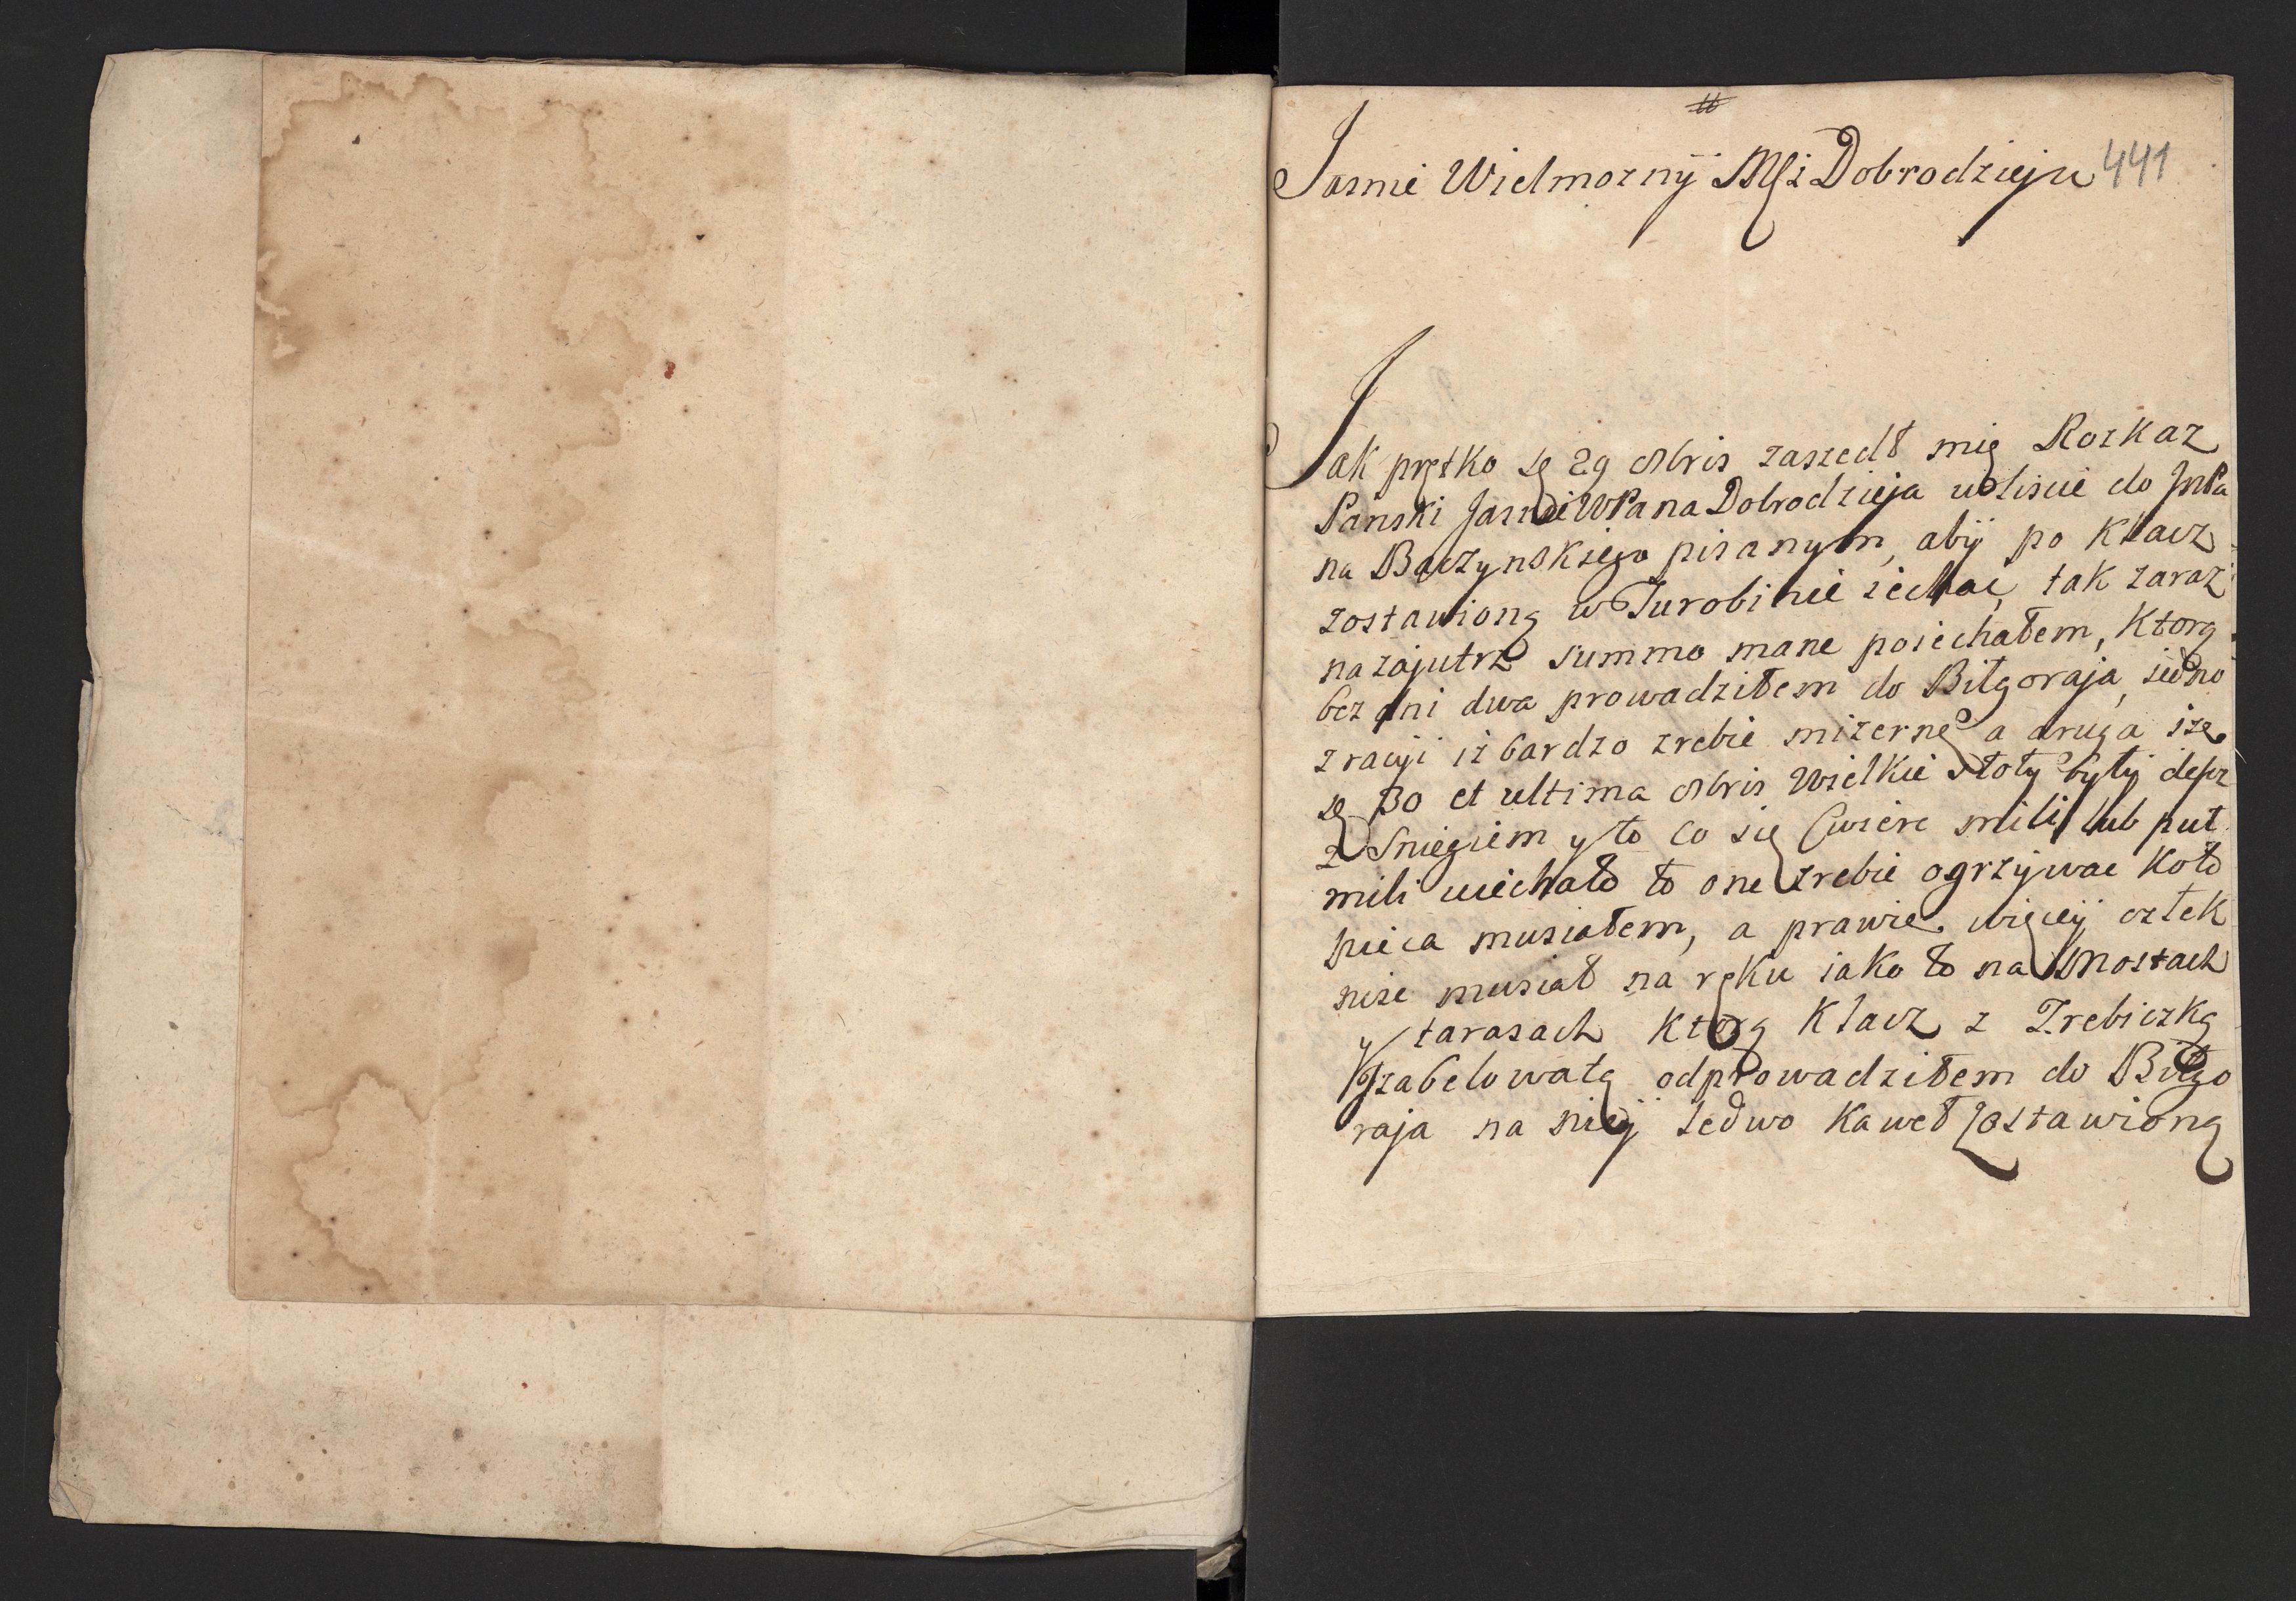 Jasnie Wielmoznÿ Mſci Dobrodzieju 441
Jak prętko de 29 8bris zaszedł mię Rozkaz
Panski Jasnie WPana Dobrodzieja w liscie do JmPa
na Baczynskiego pisanym, abÿ po Klacz
zostawioną w Turobinie iechac, tak zaraz
nazajutrz summo mane poiechałem, Ktorą
bez dni dwa prowadziłem do Biłgoraja, iedno
z racÿi iż bardzo zrebie mizerne a druga isz
de 30 et ultima 8bris Wielkie słoty bÿłÿ descz
z Sniegiem y to co się Cwierc mili lub puł
mili uiechało to one zrebie ogrzÿwac Koło
pieca musiałem, a prawie więceÿ człek
niesc musiał na ręku iako to na Mostach
y tarasach Ktorą Klacz z Zrebiczką
Jzabelowatą odprowadziłem do Biłgo
raja na nieÿ ledwo Kaweł zostawioną